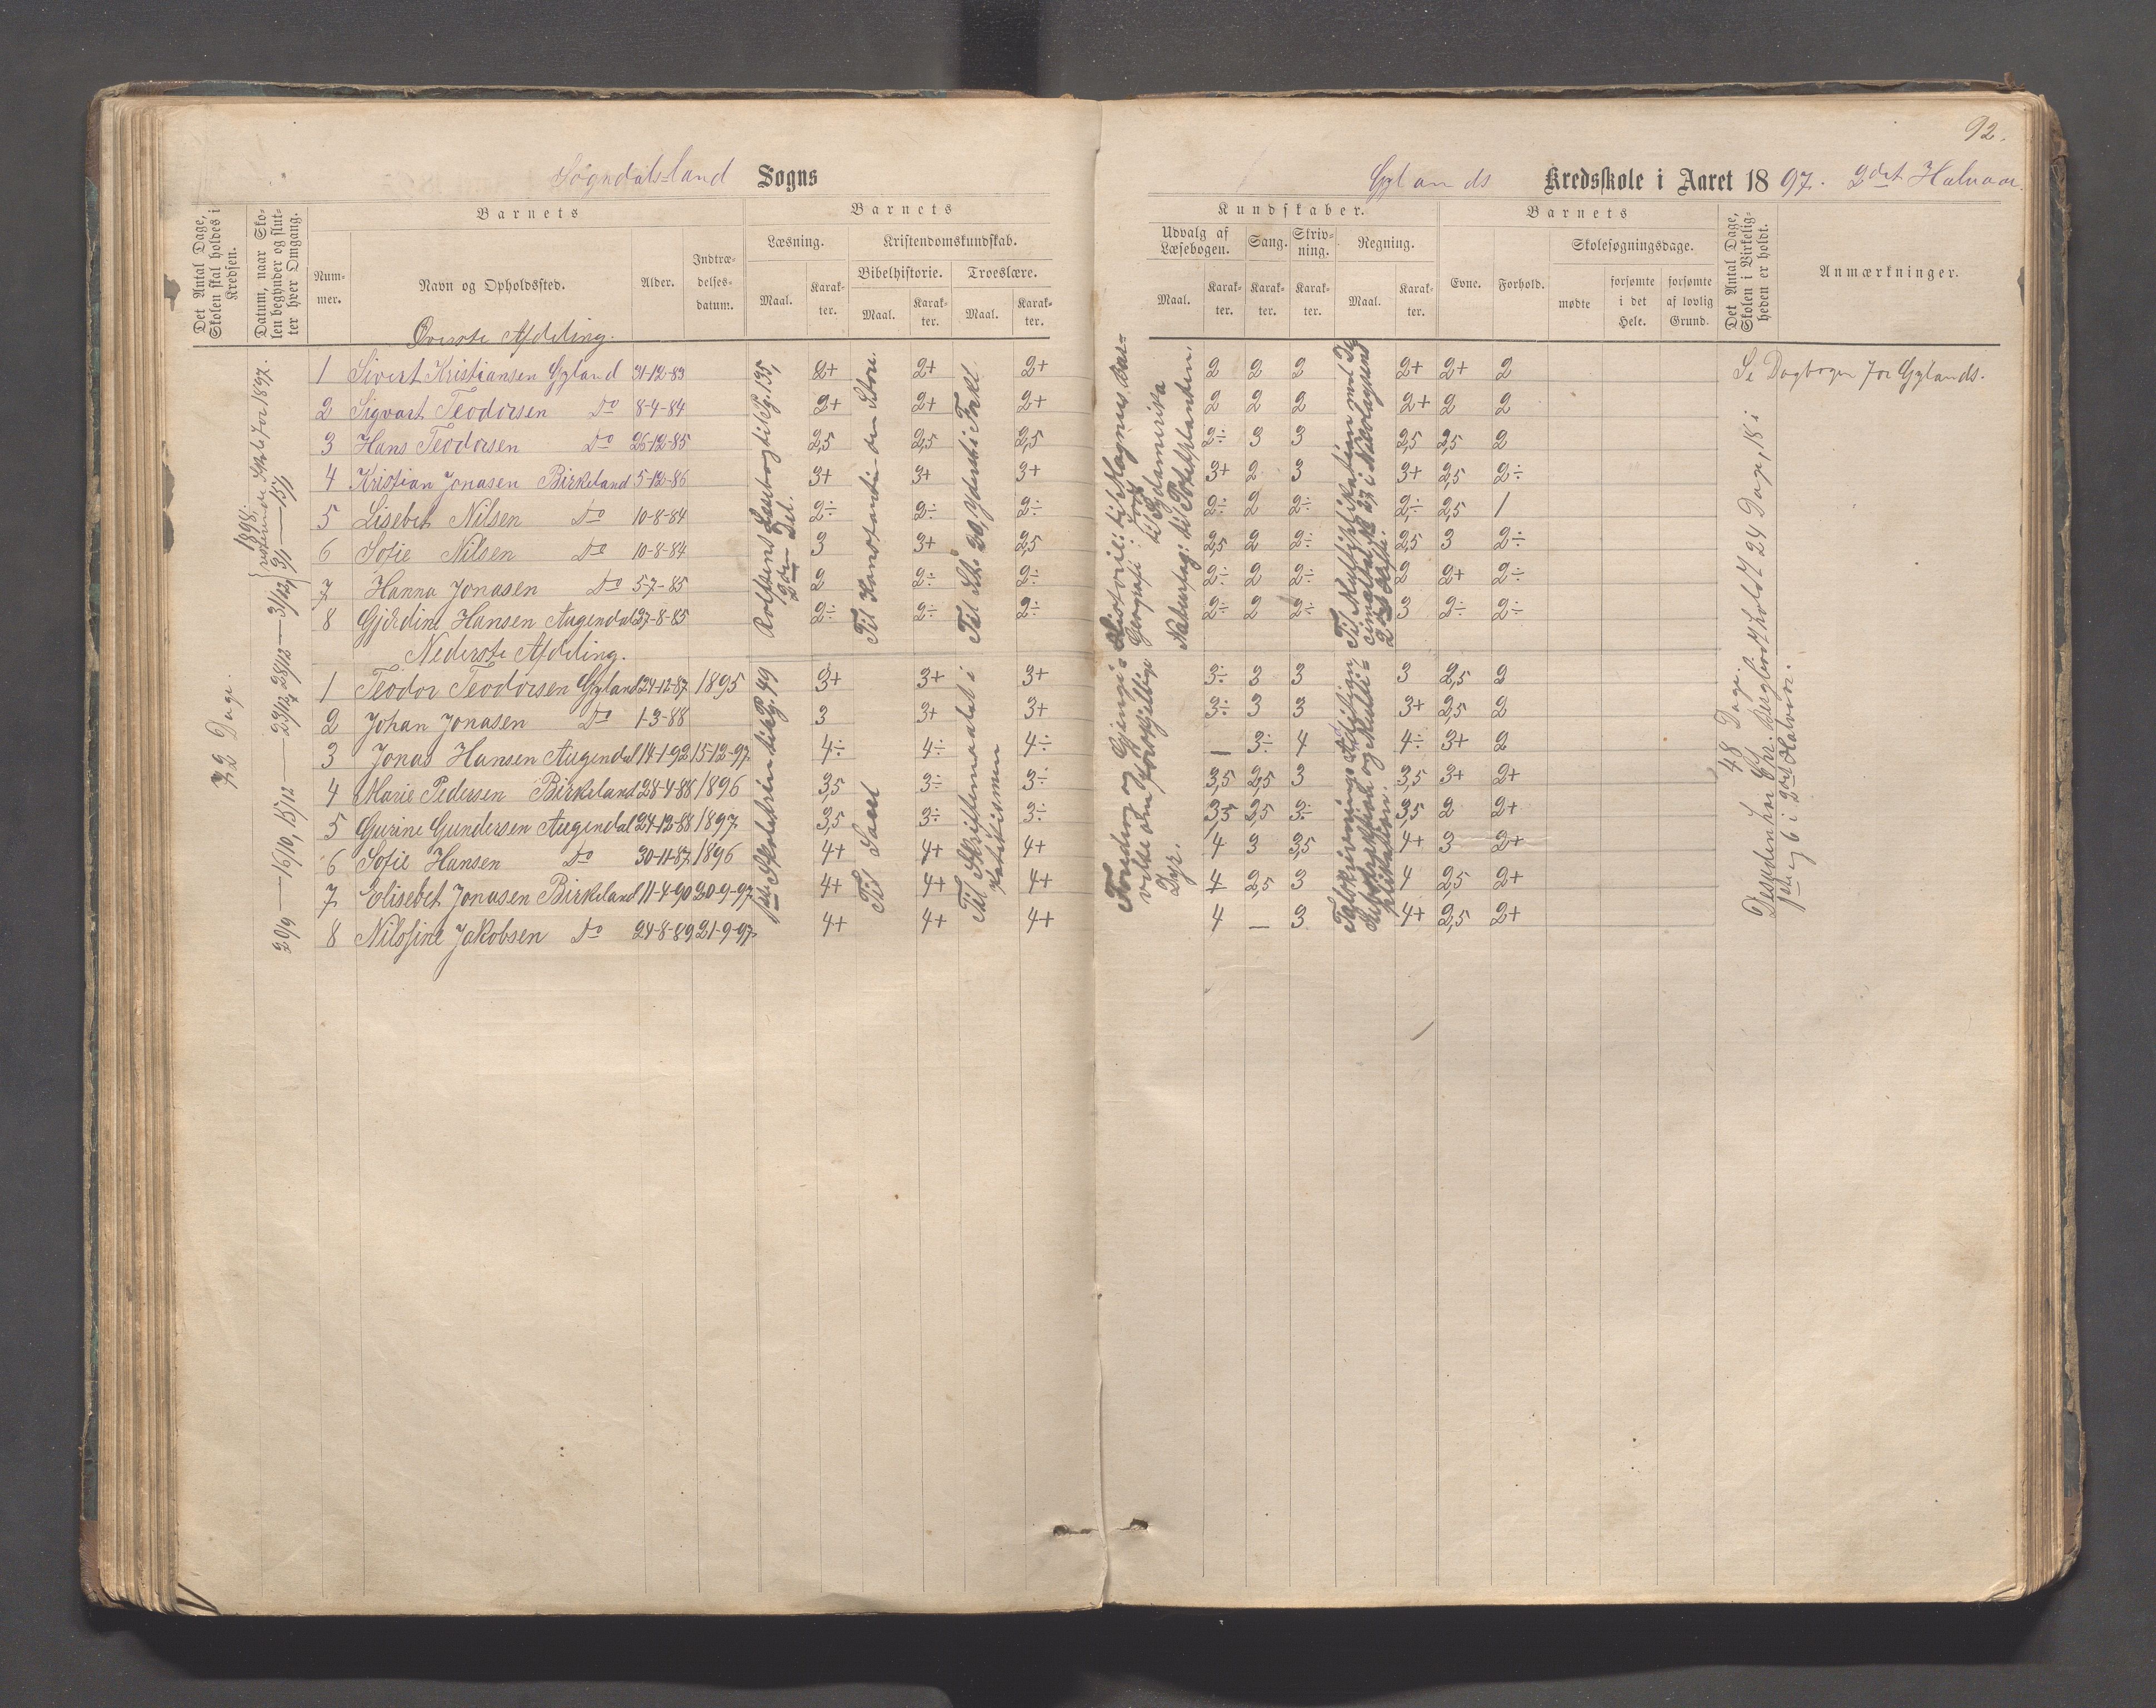 92.
Sogndalsland Sogns
Gylands Kredsskole i Aaret 1897. 2det Halvaar.
Det Antal Dage, Skolen skal holdes i Kredsen.
Datum, naar Skolen begynder og slutter hver Omgang.
Barnets
Nummer.
Navn og Opholdssted.
Alder.
Indtrædelsesdatum.
Barnets
Læsning.
Maal.
Karakter.
Kristendomskundskab.
Bibelhistorie.
Maal.
Karakter.
Troeslære.
Maal.
Karakter.
Kundskaber.
Udvalg af Læsebogen.
Maal.
Karakter.
Sang.
Karakter.
Skrivning.
Karakter.
Regning.
Maal.
Karakter.
Barnets
Evne.
Forhold.
Skolesøgningsdage.
mødte
forsømte i det Hele.
forsømte af lovlig Grund.
Det Antal Dage, Skolen i Virkeligheden er holdt.
Anmærkninger.
Øverste Afdeling.
1 Sivert Kristiansen Gyland 31-12-83 2+ 2+ 2+ 2 2 2 2+ 2+ 2
2 Sigvart Teodorsen Do 8-4-84 2+ 2+ 2+ 2 2 2 2+ 2 2
3 Hans Teodorsen Do 26-12-85 2,5 2,5 2,5 2÷ 3 3 2,5 2,5 2
4 Kristian Jonasen Birkeland 5-12-86 3+ 3+ 3+ 3+ 2 3 3+ 2,5 2÷
5 Lisebet Nilsen Do 10-8-84 2÷ 2÷ 2÷ 2÷ 2 2÷ 2÷ 2,5 1
6 Sofie Nilsen Do 10-8-84 3 3+ 2,5 2,5 2 2÷ 2,5 3 2÷
7 Hanna Jonasen Do 5-7-85 2 2÷ 2÷ 2÷ 2 2÷ 2 2+ 2÷
8 Gjerdine Hansen Augendal 27-8-85 2÷ 2÷ 2÷ 2÷ 2 2÷ 3 2÷ 2÷
Nederste Afdeling.
1 Teodor Teodorsen Gyland 24-12-87 1895 3+ 3+ 3+ 3÷ 3 3 3 2,5 2
2 Johan Jonasen Do 1-3-88 3 3+ 3+ 3÷ 3 3 3+ 2,5 2
3 Jonas Hansen Augendal 14-1-92 15-12-97 4÷ 4÷ 4÷ — 3÷ 4 4÷ 3+ 2
4 Marie Pedersen Birkeland 28-4-88 1896 3,5 3÷ 3÷ 3,5 2,5 3 3,5 3+ 2+
5 Gurine Gundersen Augendal 24-12-88 1897 3,5 3÷ 3÷ 3,5 2,5 3÷ 3,5 2 2+
6 Sofie Hansen Do 30-11-87 1896 4+ 4+ 4+ 4 3 3,5 4+ 3 2+
7 Elisebet Jonasen Birkeland 11-4-90 20-9-97 4+ 4+ 4+ 4 2,5 3 4 2,5 2+
8 Nilsine Jakobsen Do 24-8-89 21-9-97 4+ 4+ 4+ 4 — 3 4+ 2,5 2+
72 Dage.
20/9 — 16/10, 15/12 — 23/12 28/12 — 31/12, 3/1 — 15/1
1898.
for 1897.
Rolfsens Læsebog til Pg. 135,
2den Del.
Til Konstantin den Store.
Til St. 20, Yderst i Tekt
Historie: til Magnus Bar-
Geografi:
til Sydamerika
Naturfag: til Potetsplanten.
Til Multiplikation med De-
cimaltal
Skolelæsen til Pg. 49
Til Saul
Til Skriftemaalet i
Katekismen
Foredrag og Gjengi-
velse om forskjellige
Dyr.
Talskrivning, Addition,
Subtraktion og Multi-
plikation.
Se Dagbogen for Gylands.
48 Dage.
Desuden har Chr. holdt 24 Dage, 18 i
1ste og 6 i 2det Halvår.